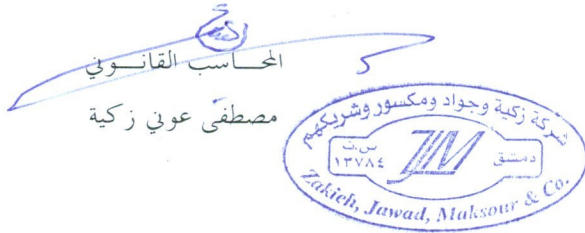 المحاسب القانوني
مصطفى عوني زكية
شركة زكية وجواد ومكسور وشريكهم
س.ت
١٣٧٨٤
ZJM
دمشق
Zakieh, Jawad, Maksour & Co.